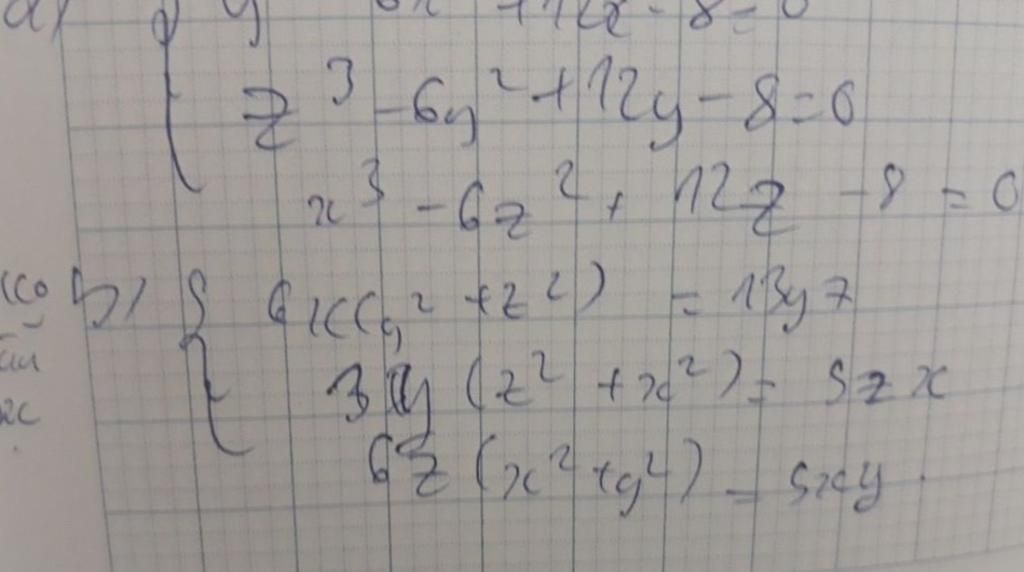 a) y 6x +12x - 8 = 0
z³ - 6y² + 12y - 8 = 0
x³ - 6z² + 12z - 8 = 0
b) 6x(y² + z²) = 13yz
3y(z² + x²) = 5zx
6z(x² + y²) = 5xy.